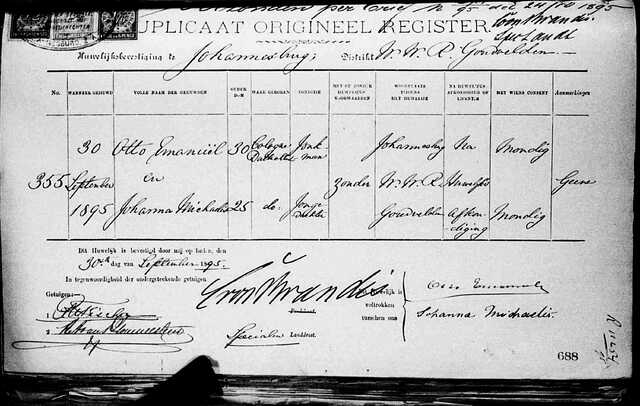 per brief N 95 dd 24/10 1895
von Brandis.
Spec Landdt
DUPLICAAT ORIGINEEL REGISTER.
Huwelijksbevestiging te Johannesburg; Distrikt W.W.R. Goudvelden.
No. WANNEER GEHUWD VOLLE NAAM DER GEHUWDEN OUDERDOM WAAR GEBOREN CONDITIE MET OF ZONDER HUWELIJKS VOORWAARDEN WOONPLAATS TIJDENS HET HUWELIJK NA HUWELIJKS AFKONDIGING OF LICENTIE MET WIENS CONSENT Aanmerkingen
30 Otto Emanuel 30 Cologne Jonkman Johannesburg Na Mondig
355 September en zonder W.W.R. Huwelijks Geene
1895 Johanna Michaelis 25 do. Jonge Dochter Goudvelden Afkondiging Mondig
Dit Huwelijk is bevestigd door mij op heden, den
30sten dag van September 1895.
In tegenwoordigheid der ondergeteekende getuigen
Getuigen:
1
2
von Brandis
Speciale Landdrost.
Dit Huwelijk is voltrokken tusschen ons
Otto Emanuel
Johanna Michaelis.
688